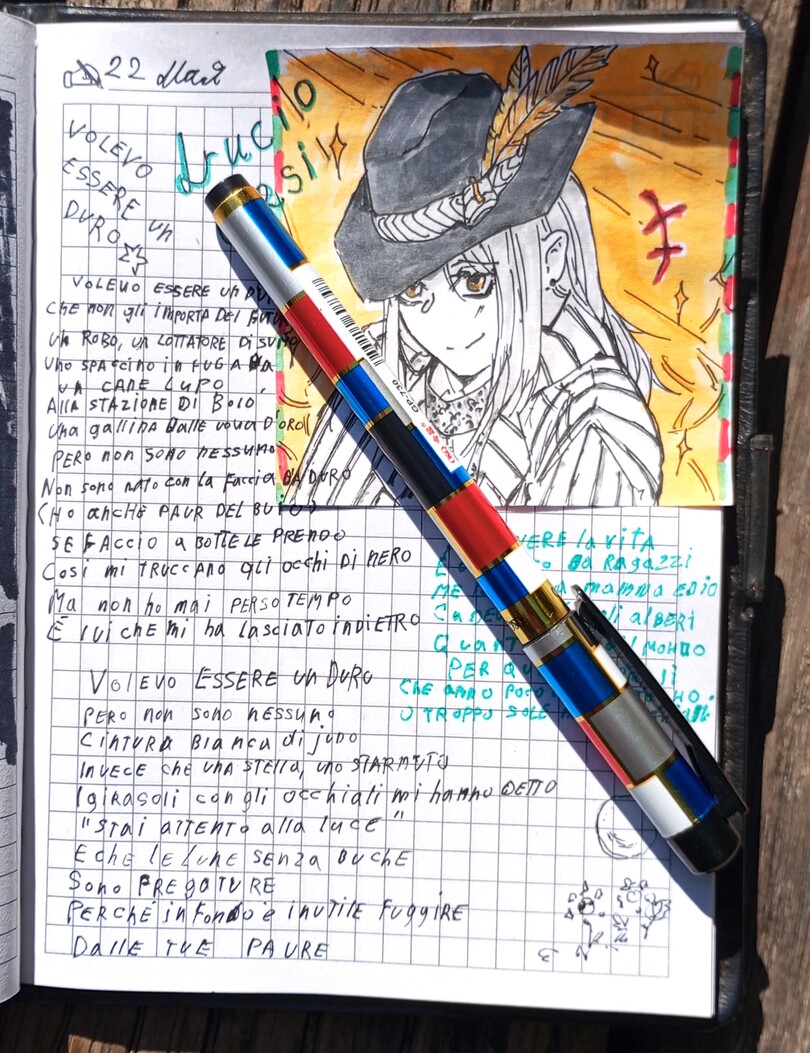 22 Мая
VOLEVO
ESSERE un
DURO
Lucio
VOLEVO ESSERE un
CHE non gli IMPORTA DEL
un ROBO, un LOTTATORE DI
uno SPACCINO in FUGA DA
un CANE LUPO
ALLA STAZIONE DI BOLO
una gallina DALLE UOVA D'ORO
PERO non SONO nESSUNO
Non sono nato con la Faccia DA DURO
(HO anCHE PAUR DEL BUIO)
SE FACCIO a BOTTE LE PRENDO
COSI mi TRUCCANO gli occhi DI NERO
Ma non ho mai PERSO TEMPO
È lui che mi ha lasciato inDIETRO
VOLEVO ESSERE un DURO
PERO non SONO nESSUNO
CINTURA BIANCA di JUDO
INVECE CHE UNA STELLA, uno STARNUTO
I girasoli con gli occhiali mi hanno DETTO
"STAI ATTENTO alla luce"
E che le Lune senza BUCHE
Sono FREGATURE
PERCHÉ in Fondo è inUTILE FUGGIRE
DALLE TUE PAURE
GP-730
VERE la vita
DA RAGAZZI
mamma E DIO
gli alBERI
il MONDO
PER
CHE anno POCO
O TROPPO SOLE